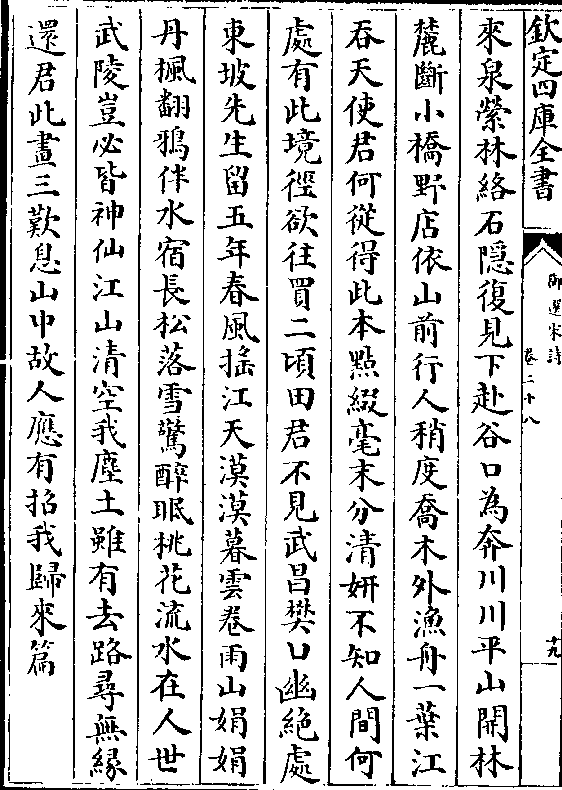 欽定四庫全書
御選宋詩
卷二十八
十九
來泉縈林絡石隱復見下赴谷口為奔川川平山開林
麓斷小橋野店依山前行人稍度喬木外漁舟一葉江
吞天使君何從得此本點綴毫末分清妍不知人間何
處有此境徑欲往買二頃田君不見武昌樊口幽絕處
東坡先生留五年春風搖江天漠漠暮雲卷雨山娟娟
丹楓翻鴉伴水宿長松落雪驚醉眠桃花流水在人世
武陵豈必皆神仙江山清空我塵土雖有去路尋無緣
還君此畫三歎息山中故人應有招我歸來篇